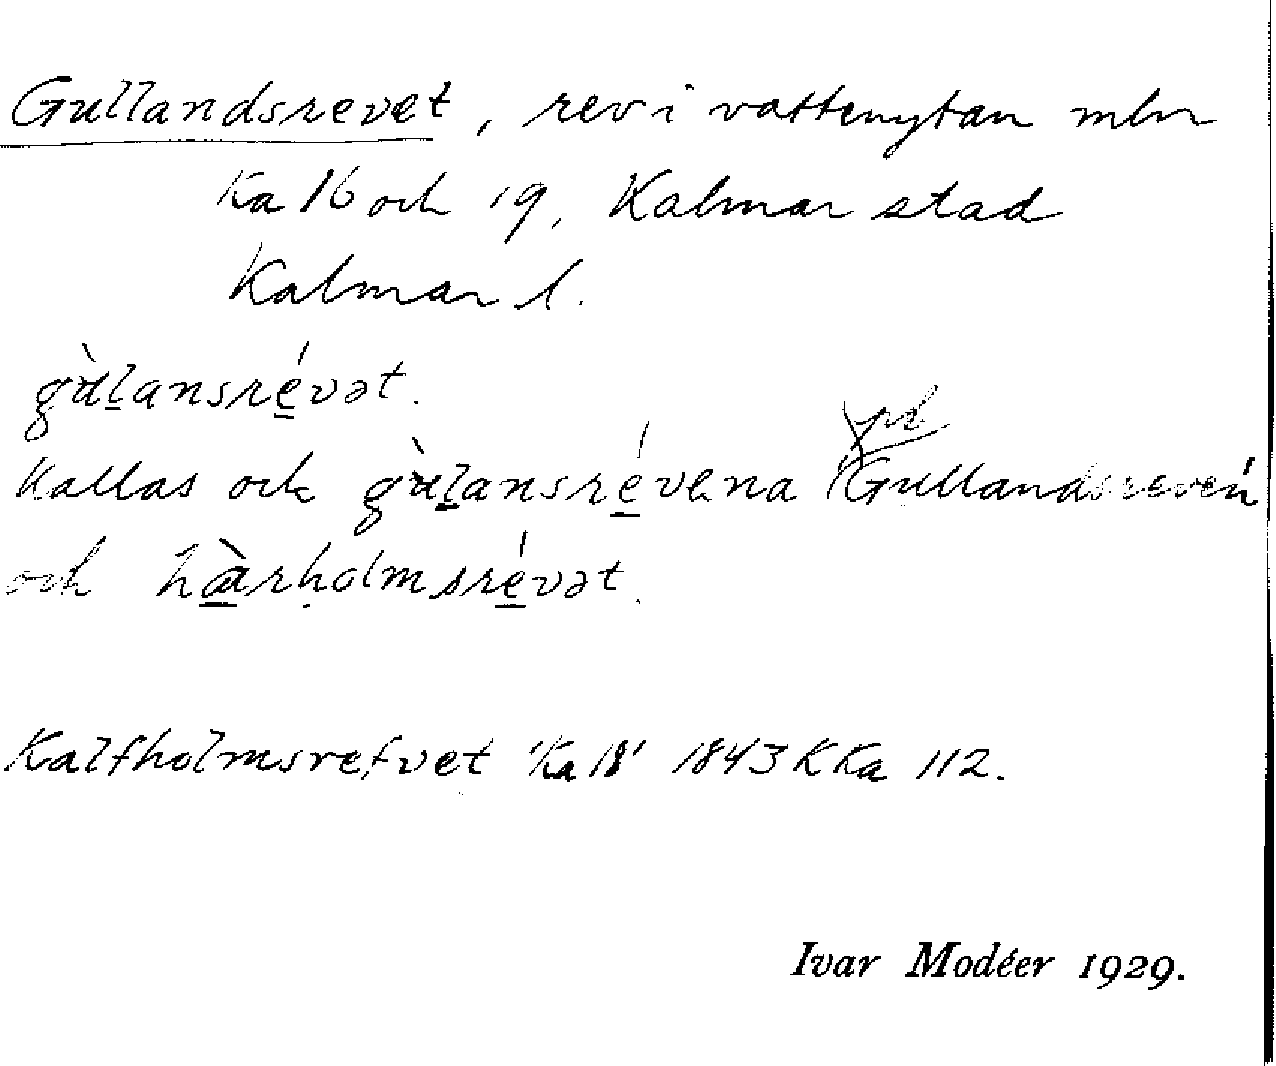 Gullandsrevet, rev i vattenytan mln
Ka 16 och 19, Kalmar stad
Kalmar l.
gùlansrévət.
pl.
Kallas ock gùlansrévena 'Gullandsreven'
och hàrholmsrévət.
Kalfholmsrefvet 'Ka 18' 1843 K Ka 112.
Ivar Modéer 1929.